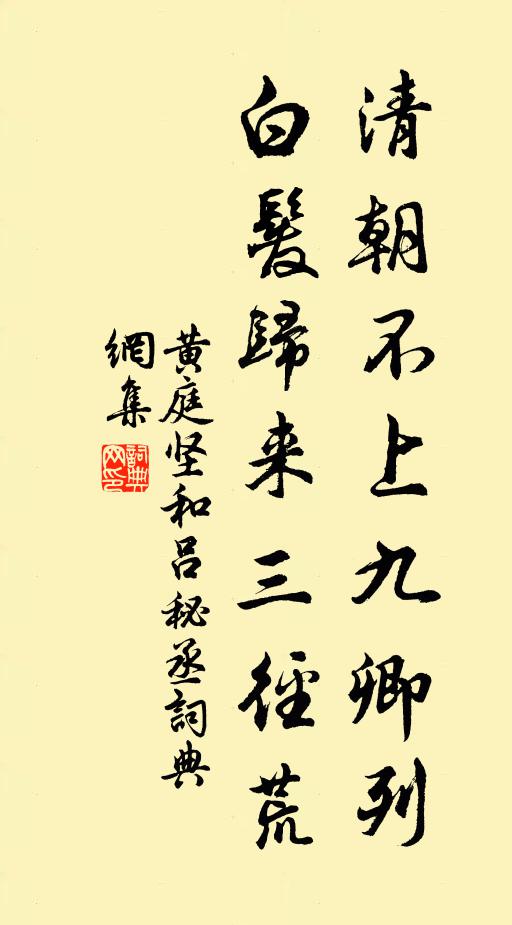 清朝不上九卿列
白髮歸来三徑荒
黄庭坚和吕秘丞詞典
網集
詞典
网印